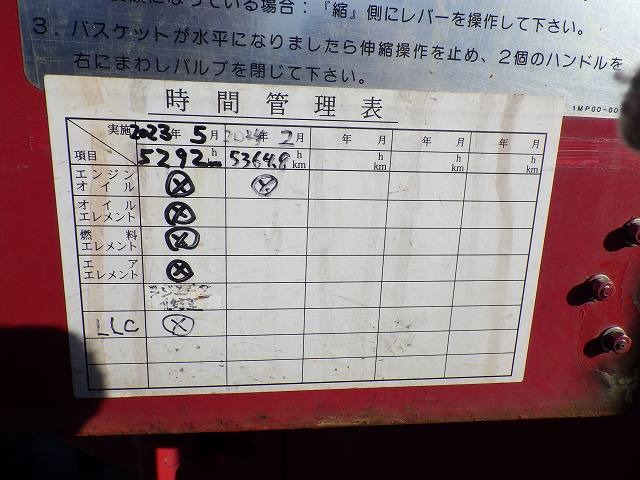 ている場合：『縮』側にレバーを操作して下さい。
３．バスケットが水平になりましたら伸縮操作を止め、２個のハンドルを
右にまわしバルブを閉じて下さい。
1MP00-00
時間管理表
実施 2023年 5月 年 2月 年 月 年 月 年 月
項目 5292 h km 5364.8 h km h km h km h km
エンジンオイル ⓧ ⓧ
オイルエレメント ⓧ
燃料エレメント ⓧ
エアエレメント ⓧ
LLC ⓧ